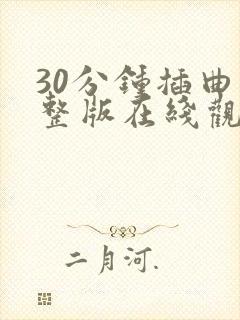 30分鍾插曲
整版在綫觀
二月河.